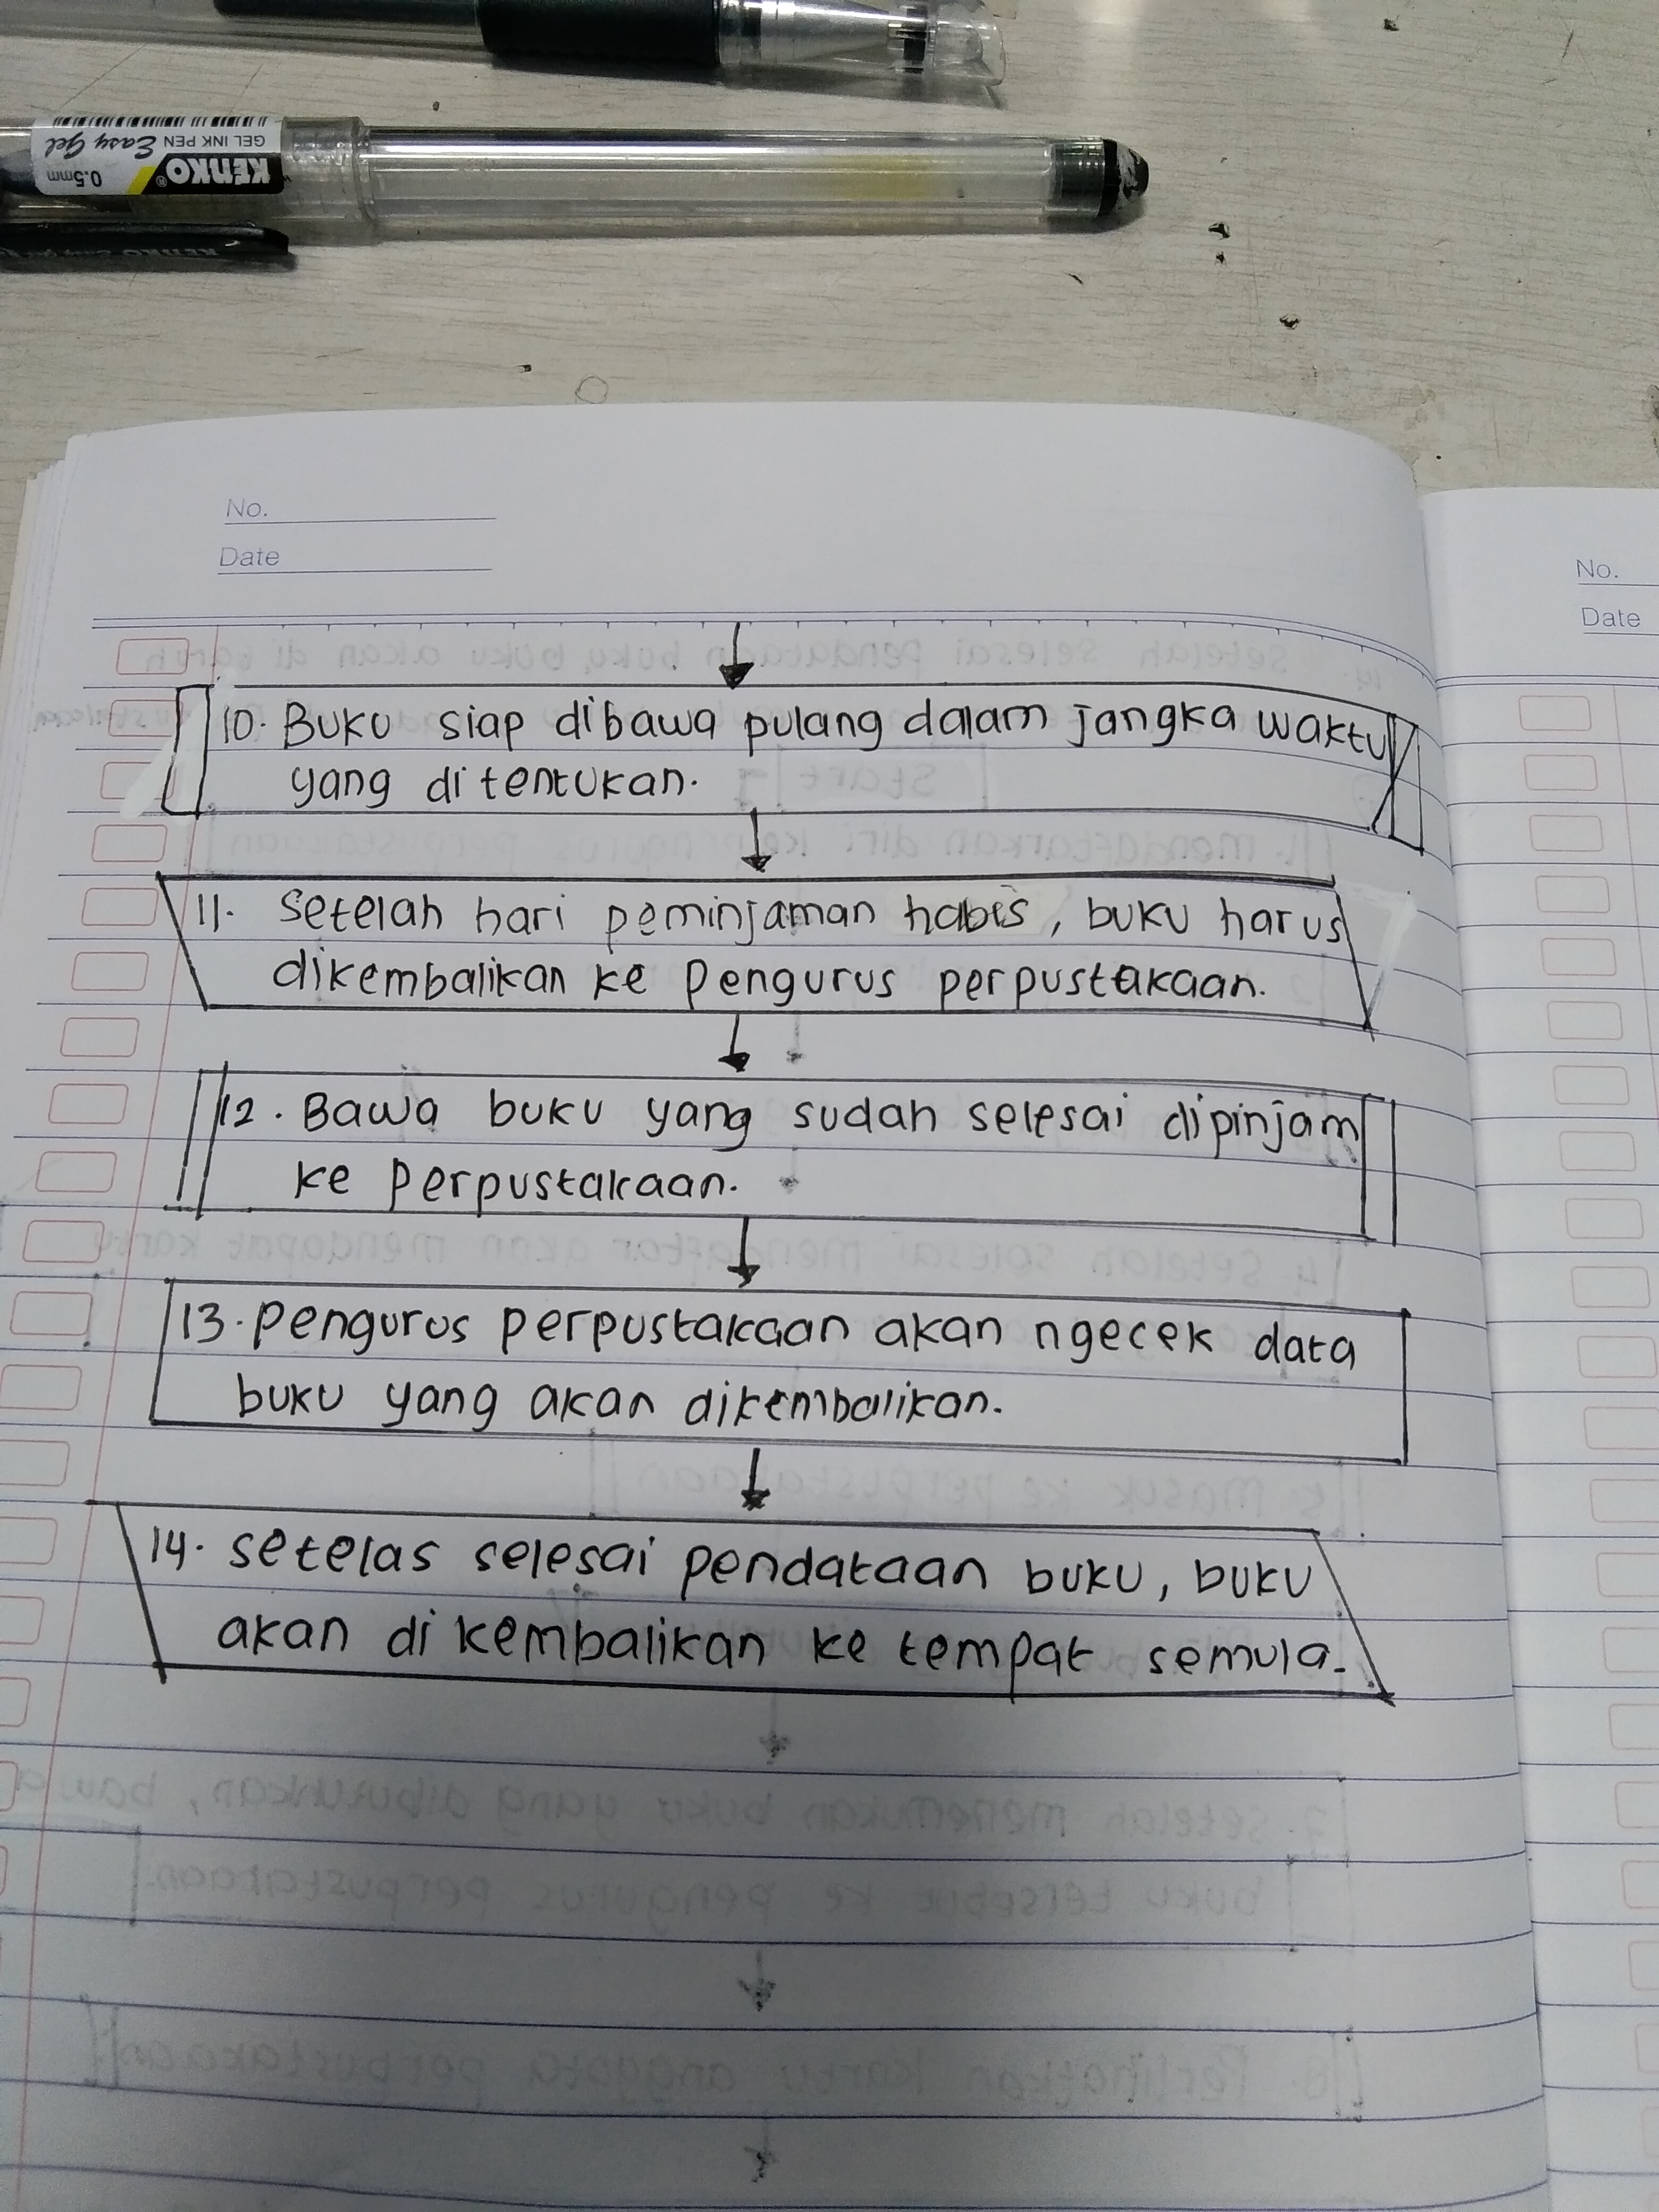 KENKO
0.5mm
GEL INK PEN Easy Gel
No.
Date
No.
Date
10. Buku siap dibawa pulang dalam jangka waktu
yang ditentukan.
11. Setelah hari peminjaman habis, buku harus
dikembalikan ke pengurus perpustakaan.
12. Bawa buku yang sudah selesai dipinjam
ke perpustakaan.
13. pengurus perpustakaan akan ngecek data
buku yang akan dikembalikan.
14. setelas selesai pendataan buku, buku
akan di kembalikan ke tempat semula.